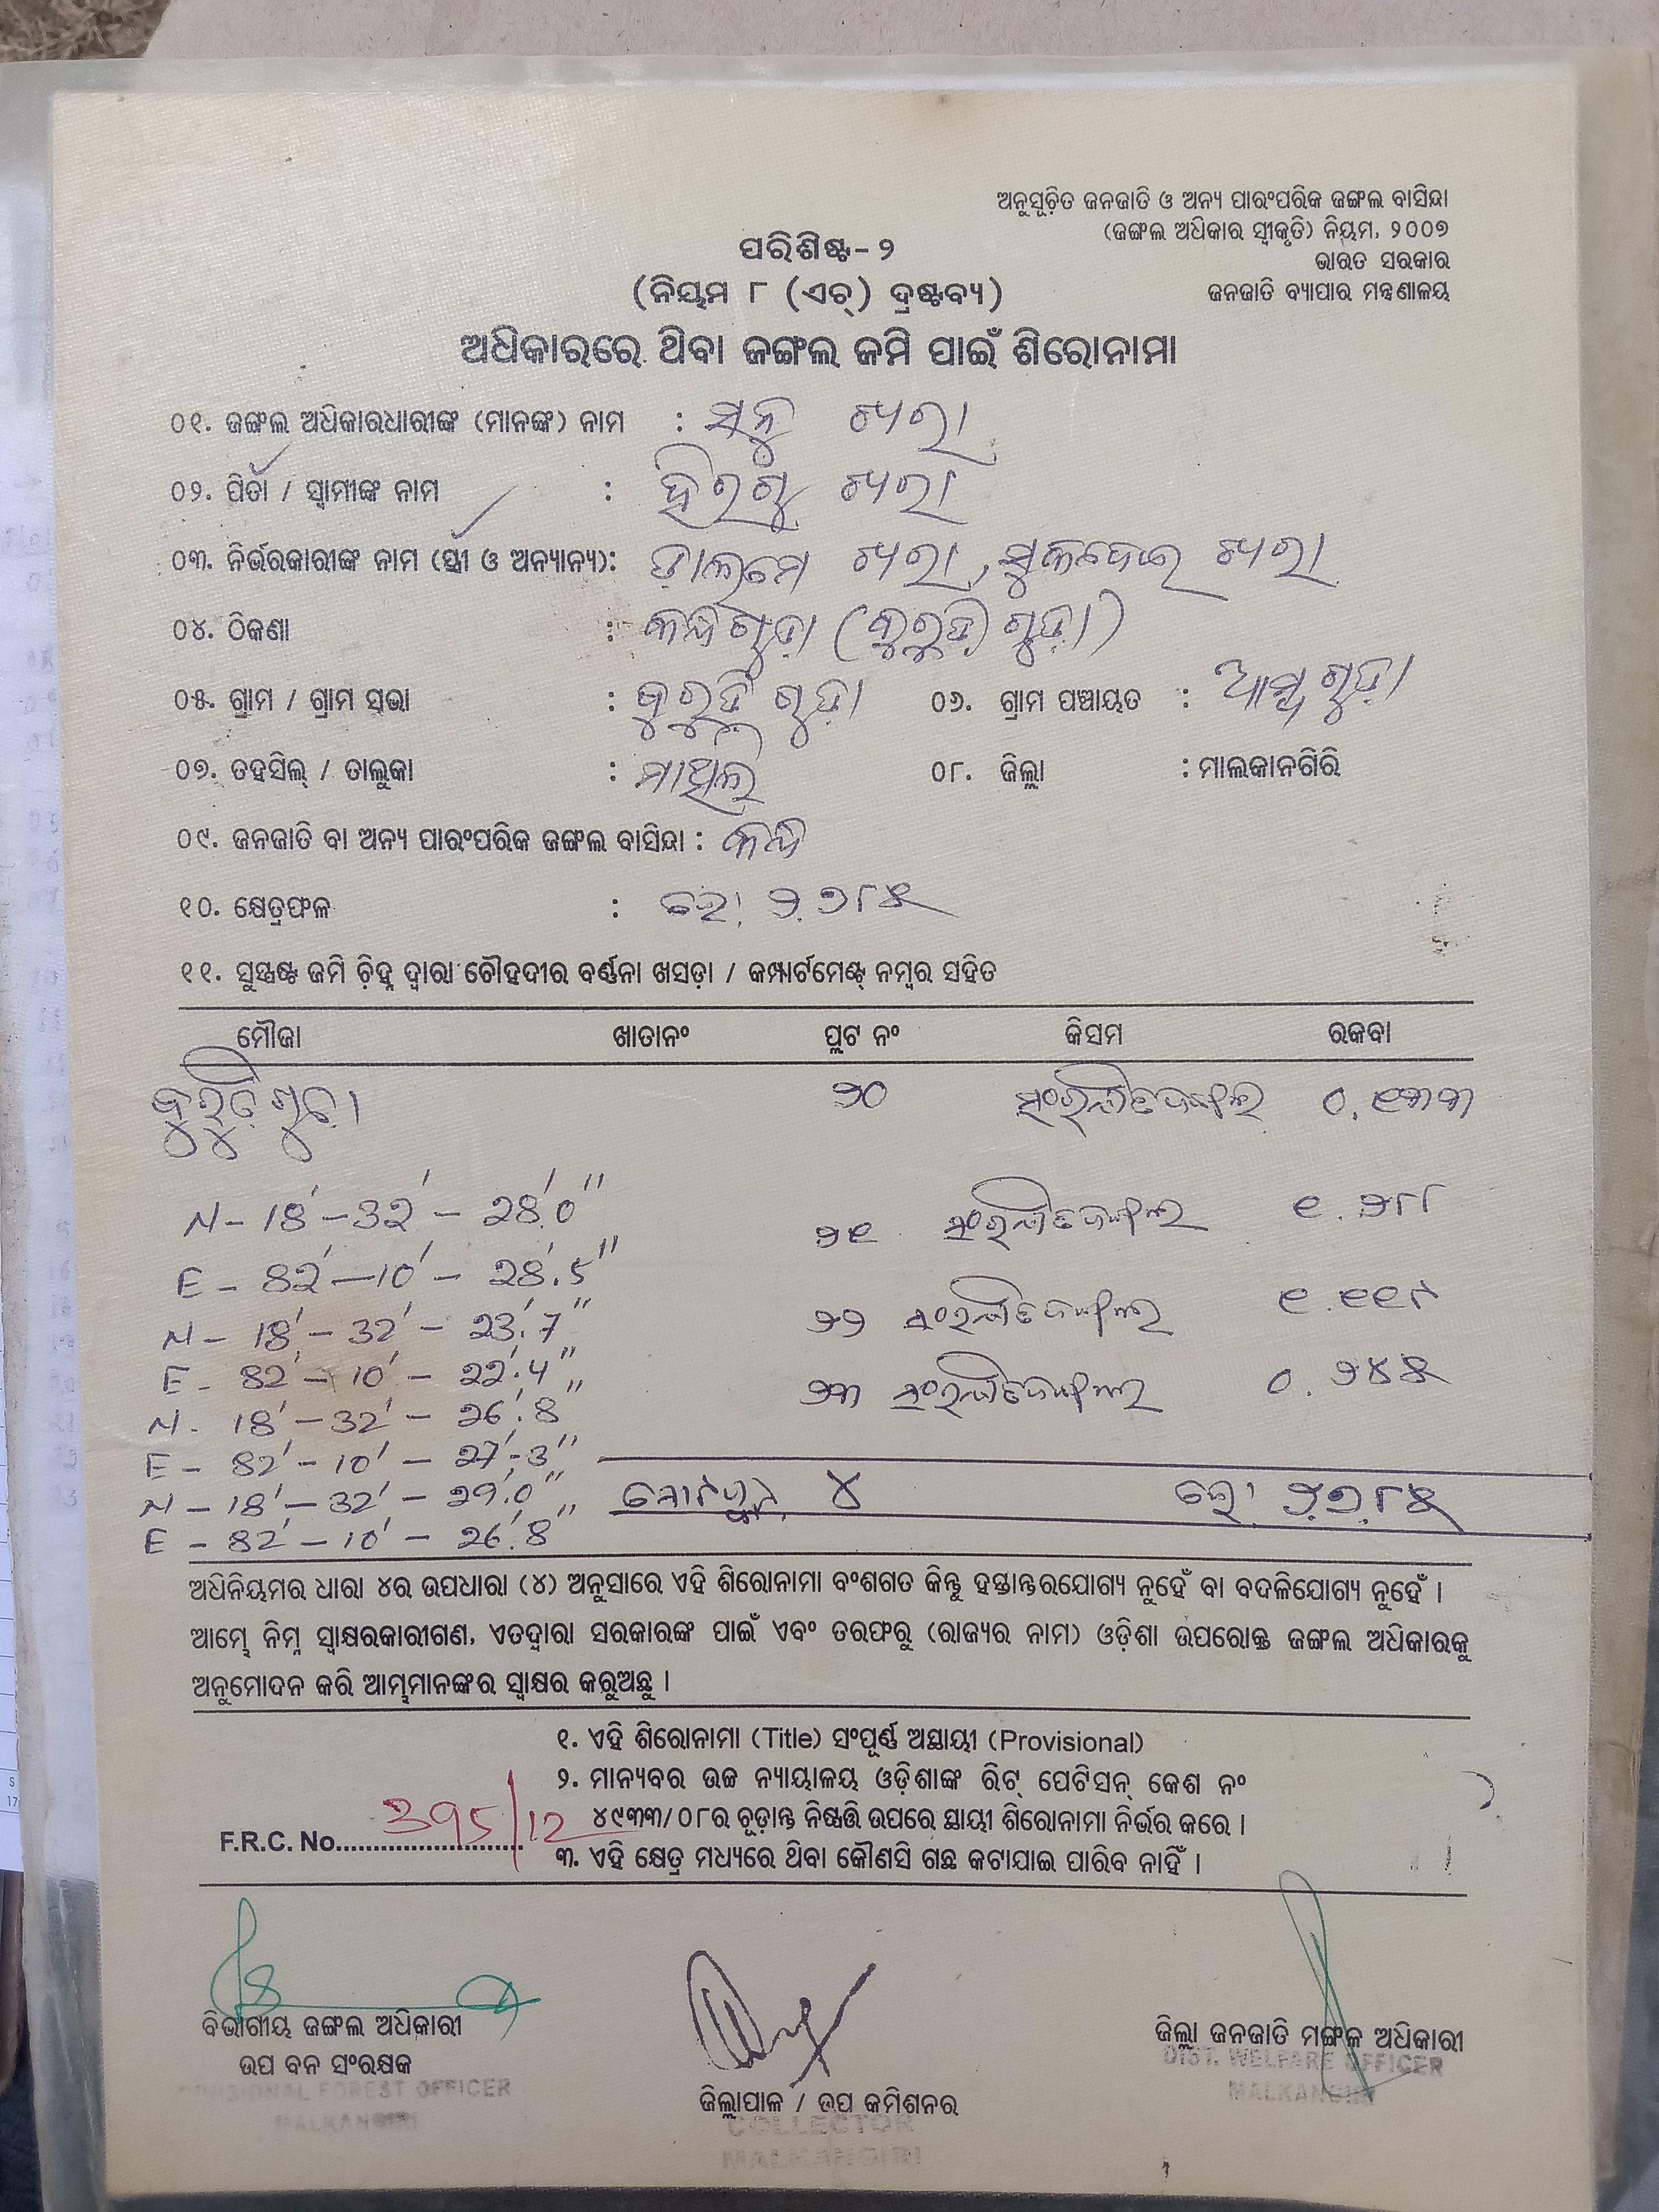 ଅନୁସୂଚିତ ଜନଜାତି ଓ ଅନ୍ୟ ପାରଂପରିକ ଜଙ୍ଗଲ ବାସିନ୍ଦା
(ଜଙ୍ଗଲ ଅଧିକାର ସ୍ୱୀକୃତି) ନିୟମ, ୨୦୦୭
ଭାରତ ସରକାର
ଜନଜାତି ବ୍ୟାପାର ମନ୍ତ୍ରଣାଳୟ
ପରିଶିଷ୍ଟ-୨
(ନିୟମ ୮ (ଏଚ୍) ଦ୍ରଷ୍ଟବ୍ୟ)
ଅଧିକାରରେ ଥିବା ଜଙ୍ଗଲ ଜମି ପାଇଁ ଶିରୋନାମା
୦୧. ଜଙ୍ଗଲ ଅଧିକାରଧାରୀଙ୍କ (ମାନଙ୍କ) ନାମ : ସନୁ ଖରା
୦୨. ପିତା / ସ୍ୱାମୀଙ୍କ ନାମ : ହିରଗୁ ଖରା
୦୩. ନିର୍ଭରକାରୀଙ୍କ ନାମ (ସ୍ତ୍ରୀ ଓ ଅନ୍ୟାନ୍ୟ): ଡାଲମେ ଖରା, ସୁକଦେଇ ଖରା
୦୪. ଠିକଣା : କନ୍ଧଗୁଡ଼ା (କୁରୁଡ଼ି ଗୁଡ଼ା)
୦୫. ଗ୍ରାମ / ଗ୍ରାମ ସଭା : କୁରୁଡ଼ି ଗୁଡ଼ା ୦୬. ଗ୍ରାମ ପଞ୍ଚାୟତ : ଆମ୍ବଗୁଡ଼ା
୦୭. ତହସିଲ୍ / ତାଲୁକା : ମାଥିଲି ୦୮. ଜିଲ୍ଲା : ମାଲକାନଗିରି
୦୯. ଜନଜାତି ବା ଅନ୍ୟ ପାରଂପରିକ ଜଙ୍ଗଲ ବାସିନ୍ଦା : କନ୍ଧ
୧୦. କ୍ଷେତ୍ରଫଳ : ହେ. ୨.୭୮୫
୧୧. ସୁସ୍ପଷ୍ଟ ଜମି ଚିହ୍ନ ଦ୍ୱାରା ଚୌହଦୀର ବର୍ଣ୍ଣନା ଖସଡ଼ା / କମ୍ପାର୍ଟମେଣ୍ଟ୍ ନମ୍ବର ସହିତ
ମୌଜା ଖାତାନଂ ପ୍ଲଟ ନଂ କିସମ ରକବା
କୁରୁଡ଼ିଗୁଡ଼ା ୨୦ ସଂରକ୍ଷିତଜଙ୍ଗଲ ୦.୧୩୩
N - 18' - 32' - 28'.0"
୨୧ ସଂରକ୍ଷିତଜଙ୍ଗଲ ୧.୨୮୮
E - 82' - 10' - 28'.5"
N - 18' - 32' - 23'.7" ୨୨ ସଂରକ୍ଷିତଜଙ୍ଗଲ ୧.୧୧୯
E - 82' - 10' - 22'.4"
N - 18' - 32' - 26'.8" ୨୩ ସଂରକ୍ଷିତଜଙ୍ଗଲ ୦.୨୪୫
E - 82' - 10' - 27'.3"
N - 18' - 32' - 29'.0" ୪ ହେ. ୨.୭୮୫
E - 82' - 10' - 26'.8"
ଅଧିନିୟମର ଧାରା ୪ର ଉପଧାରା (୪) ଅନୁସାରେ ଏହି ଶିରୋନାମା ବଂଶଗତ କିନ୍ତୁ ହସ୍ତାନ୍ତରଯୋଗ୍ୟ ନୁହେଁ ବା ବଦଳିଯୋଗ୍ୟ ନୁହେଁ ।
ଆମ୍ଭେ ନିମ୍ନ ସ୍ୱାକ୍ଷରକାରୀଗଣ, ଏତଦ୍ୱାରା ସରକାରଙ୍କ ପାଇଁ ଏବଂ ତରଫରୁ (ରାଜ୍ୟର ନାମ) ଓଡ଼ିଶା ଉପରୋକ୍ତ ଜଙ୍ଗଲ ଅଧିକାରକୁ
ଅନୁମୋଦନ କରି ଆମ୍ଭମାନଙ୍କର ସ୍ୱାକ୍ଷର କରୁଅଛୁ ।
୧. ଏହି ଶିରୋନାମା (Title) ସଂପୂର୍ଣ୍ଣ ଅସ୍ଥାୟୀ (Provisional)
୨. ମାନ୍ୟବର ଉଚ୍ଚ ନ୍ୟାୟାଳୟ ଓଡ଼ିଶାଙ୍କ ରିଟ୍ ପେଟିସନ୍ କେଶ ନଂ
୪୯୩୩/୦୮ର ଚୂଡ଼ାନ୍ତ ନିଷ୍ପତ୍ତି ଉପରେ ସ୍ଥାୟୀ ଶିରୋନାମା ନିର୍ଭର କରେ ।
F.R.C. No. 395/12
୩. ଏହି କ୍ଷେତ୍ର ମଧ୍ୟରେ ଥିବା କୌଣସି ଗଛ କଟାଯାଇ ପାରିବ ନାହିଁ ।
ବିଭାଗୀୟ ଜଙ୍ଗଲ ଅଧିକାରୀ
ଉପ ବନ ସଂରକ୍ଷକ
DIVISIONAL FOREST OFFICER
MALKANGIRI
ଜିଲ୍ଲାପାଳ / ଉପ କମିଶନର
COLLECTOR
MALKANGIRI
ଜିଲ୍ଲା ଜନଜାତି ମଙ୍ଗଳ ଅଧିକାରୀ
DIST. WELFARE OFFICER
MALKANGIRI